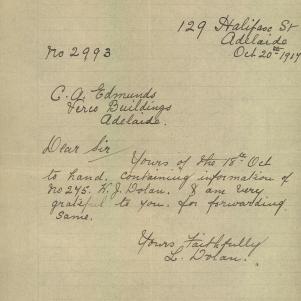 129 Halifax St
Adelaide
Oct 20th 1917
No 2993
C. A. Edmunds
Verco Buildings
Adelaide.
Dear Sir
Yours of the 18th Oct
to hand. containing information of
No 275. W. J. Dolan. I am very
grateful to you. for forwarding
same.
Yours Faithfully
L. Dolan.